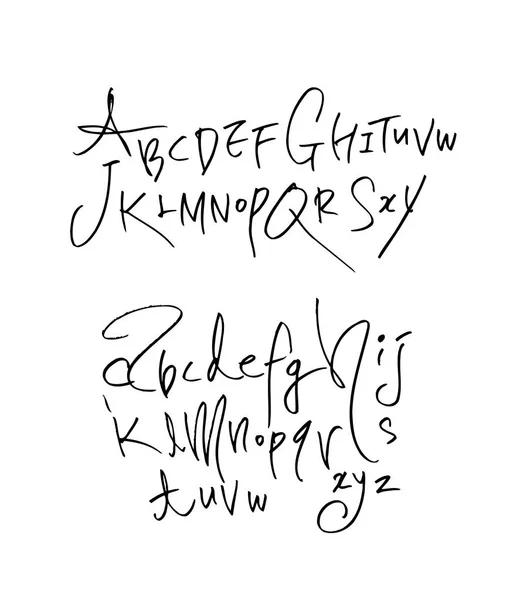 ABCDEFGHITUVW
JKLMNOPQRSxy
abcdefghij
klmnopqrs
tuvw xyz